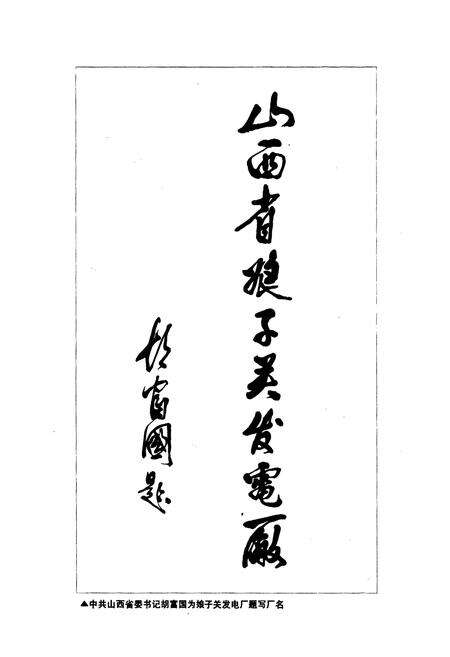 山西省娘子关发電廠
胡富國题
▲中共山西省委书记胡富国为娘子关发电厂题写厂名